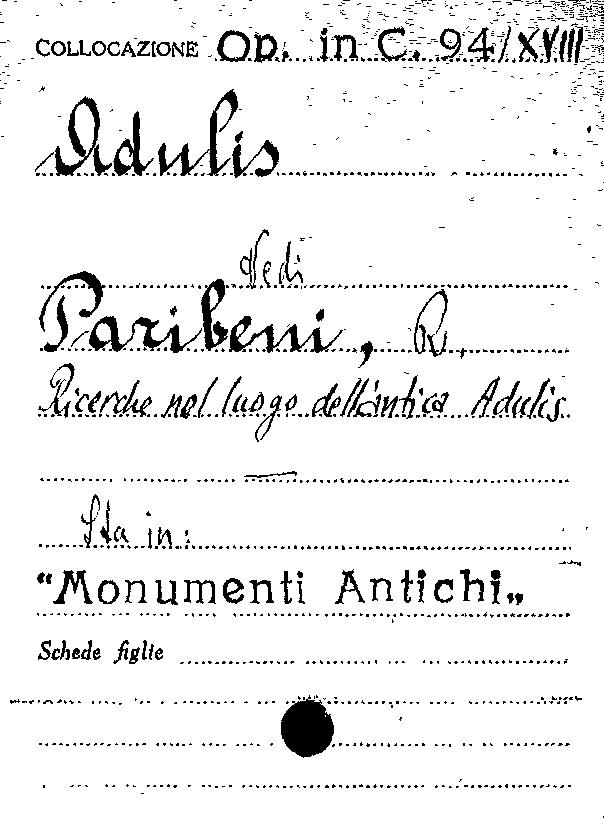 COLLOCAZIONE Op. in C. 94/XVIII
Adulis
Vedi
Paribeni, R.
Ricerche nel luogo dell'antica Adulis
Sta in:
"Monumenti Antichi„
Schede figlie